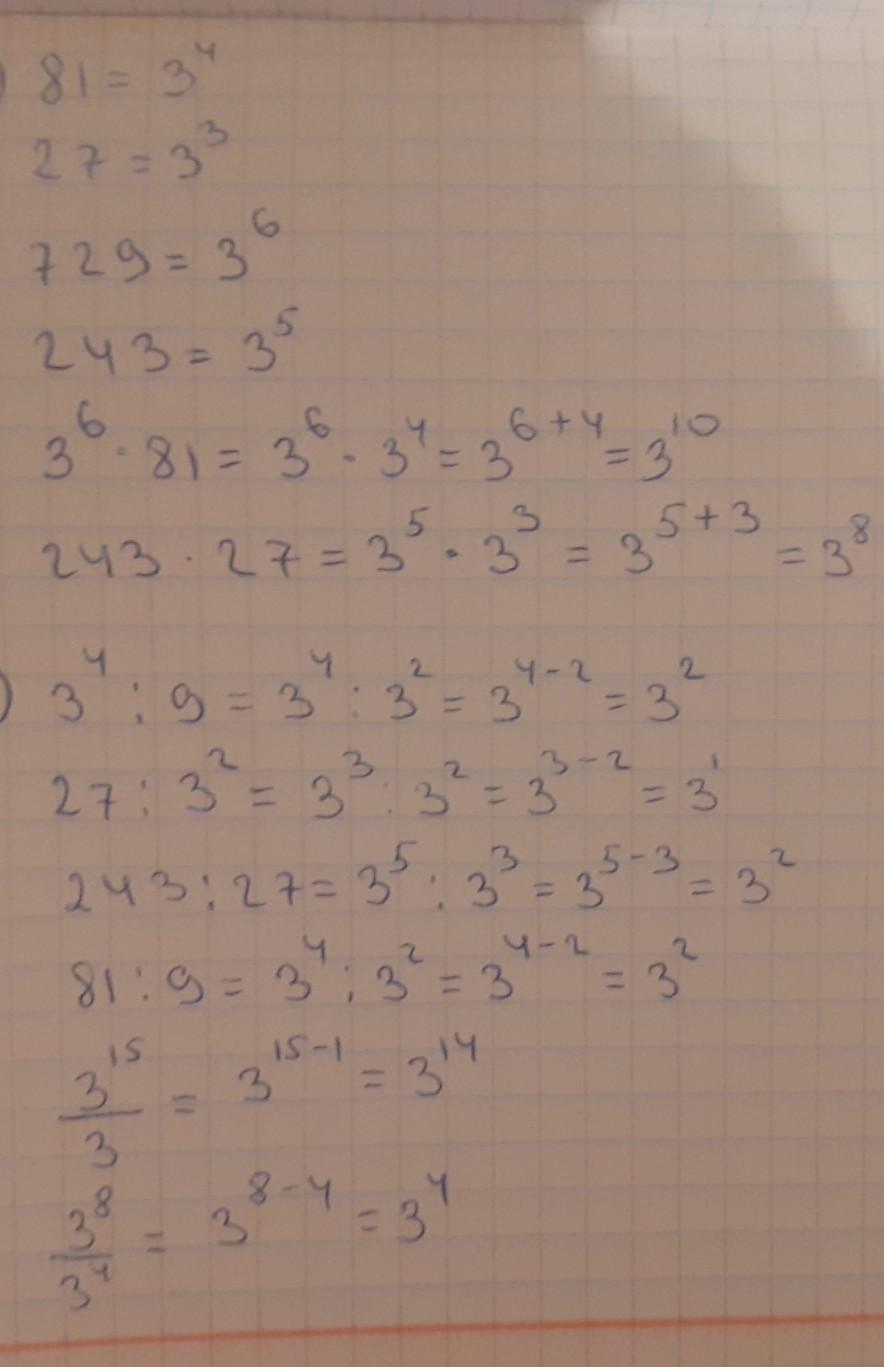 ) 81 = 3⁴
27 = 3³
729 = 3⁶
243 = 3⁵
3⁶ · 81 = 3⁶ · 3⁴ = 3⁶⁺⁴ = 3¹⁰
243 · 27 = 3⁵ · 3³ = 3⁵⁺³ = 3⁸
) 3⁴ : 9 = 3⁴ : 3² = 3⁴⁻² = 3²
27 : 3² = 3³ : 3² = 3³⁻² = 3¹
243 : 27 = 3⁵ : 3³ = 3⁵⁻³ = 3²
81 : 9 = 3⁴ : 3² = 3⁴⁻² = 3²
3¹⁵/3 = 3¹⁵⁻¹ = 3¹⁴
3⁸/3⁴ = 3⁸⁻⁴ = 3⁴